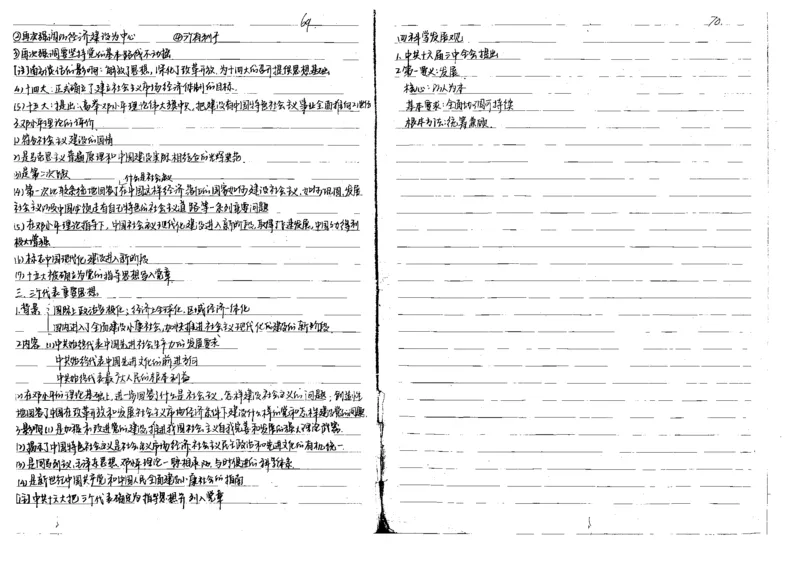 69
②再次强调以经济建设为中心 ④三个有利于
③再次强调要坚持党的基本路线不动摇
[注]南方谈话的影响：解放了思想，深化了改革开放，为十四大的召开提供思想基础
(4)十四大：正式确立了建立社会主义市场经济体制的目标
(5)十五大：提出：高举邓小平理论伟大旗帜，把建设有中国特色社会主义事业全面推向21世纪
3.邓小平理论的评价
(1)符合社会主义建设的国情
(2)是马克思主义普遍原理和中国建设实际相结合的光辉典范
(3)是第二次飞跃
什么是社会主义
(4)第一次比较系统地回答了在中国这样经济落后的国家如何建设社会主义，如何巩固、发展
社会主义以及中国怎样走有自己特色的社会主义道路等一系列重要问题
(5)在邓小平理论指导下，中国社会主义现代化建设进入新阶段，取得了迅速发展，中国国力得到
极大增强
(6)标志中国现代化建设进入新阶段
(7)十五大被确立为党的指导思想写入党章
三、三个代表重要思想
1.背景：国际上政治多极化；经济上全球化，区域经济一体化
国内进入了全面建设小康社会，加快推进社会主义现代化建设的新阶段
2.内容 (1)中共始终代表中国先进社会生产力的发展要求
中共始终代表中国先进文化的前进方向
中共始终代表最广大人民的根本利益
(2)在邓小平的理论基础上，进一步回答了什么是社会主义，怎样建设社会主义的问题；创造性
地回答了中国在改革开放和发展社会主义市场经济条件下建设什么样的党和怎样建设党的问题
3.影响(1)是加强和改进党的建设，推进我国社会主义自我完善和发展的强大理论武器
(2)揭示了中国特色社会主义是社会主义市场经济，社会主义民主政治和先进文化的有机统一
(3)是同马列主义、毛泽东思想、邓小平理论一脉相承，与时俱进的科学体系
(4)是新世纪中国共产党和中国人民全面建设小康社会的指南
[注]中共十六大把三个代表确定为指导思想并列入党章
70.
四、科学发展观
1.中共十六届三中全会提出
2.第一要义：发展
核心：以人为本
基本要求：全面协调可持续
根本方法：统筹兼顾